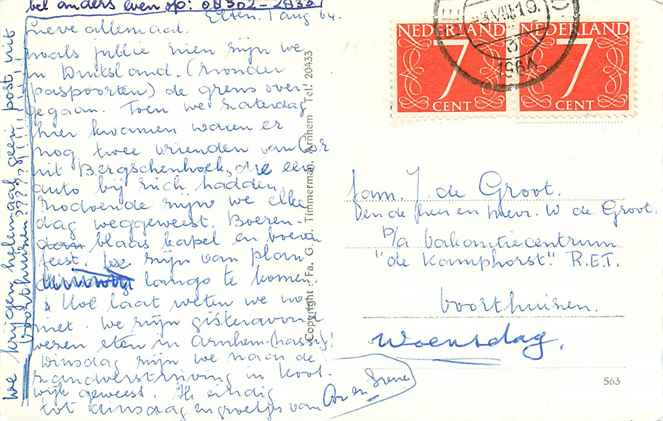 bel anders even op: 08302-2930
Etten. 1 aug 64.
Lieve allemaal.
zoals jullie zien zijn we
in Duitsland. (zonder
paspoorten) de grens over
gegaan. Toen we zaterdag
hier kwamen waren er
nog twee vrienden van Cor
uit Bergschenhoek, die een
auto bij zich hadden,
zodoende zijn we elke
dag weggeweest. Boeren-
blaas kapel en boeren
feest. We zijn van plan
langs te komen
Hoe laat weten we nog
niet. We zijn gisteravond
wezen eten in Arnhem
Dinsdag zijn we naar de
zandverstuiving in Koot
wijk geweest. Ik eindig
tot dinsdag en groetjes van
Cor en Irene
we krijgen helemaal geen post uit
Voorthuizen????!!!!!!
Copyright: Fa. G. J. Timmerman, Arnhem Tel. 20433
NEDERLAND
7
CENT
NEDERLAND
7
CENT
1964
fam. J. de Groot.
Den de Heer en mevr. W de Groot.
p/a Vakantiecentrum
"de Kamphorst" R.E.T.
Voorthuizen.
Woensdag.
563